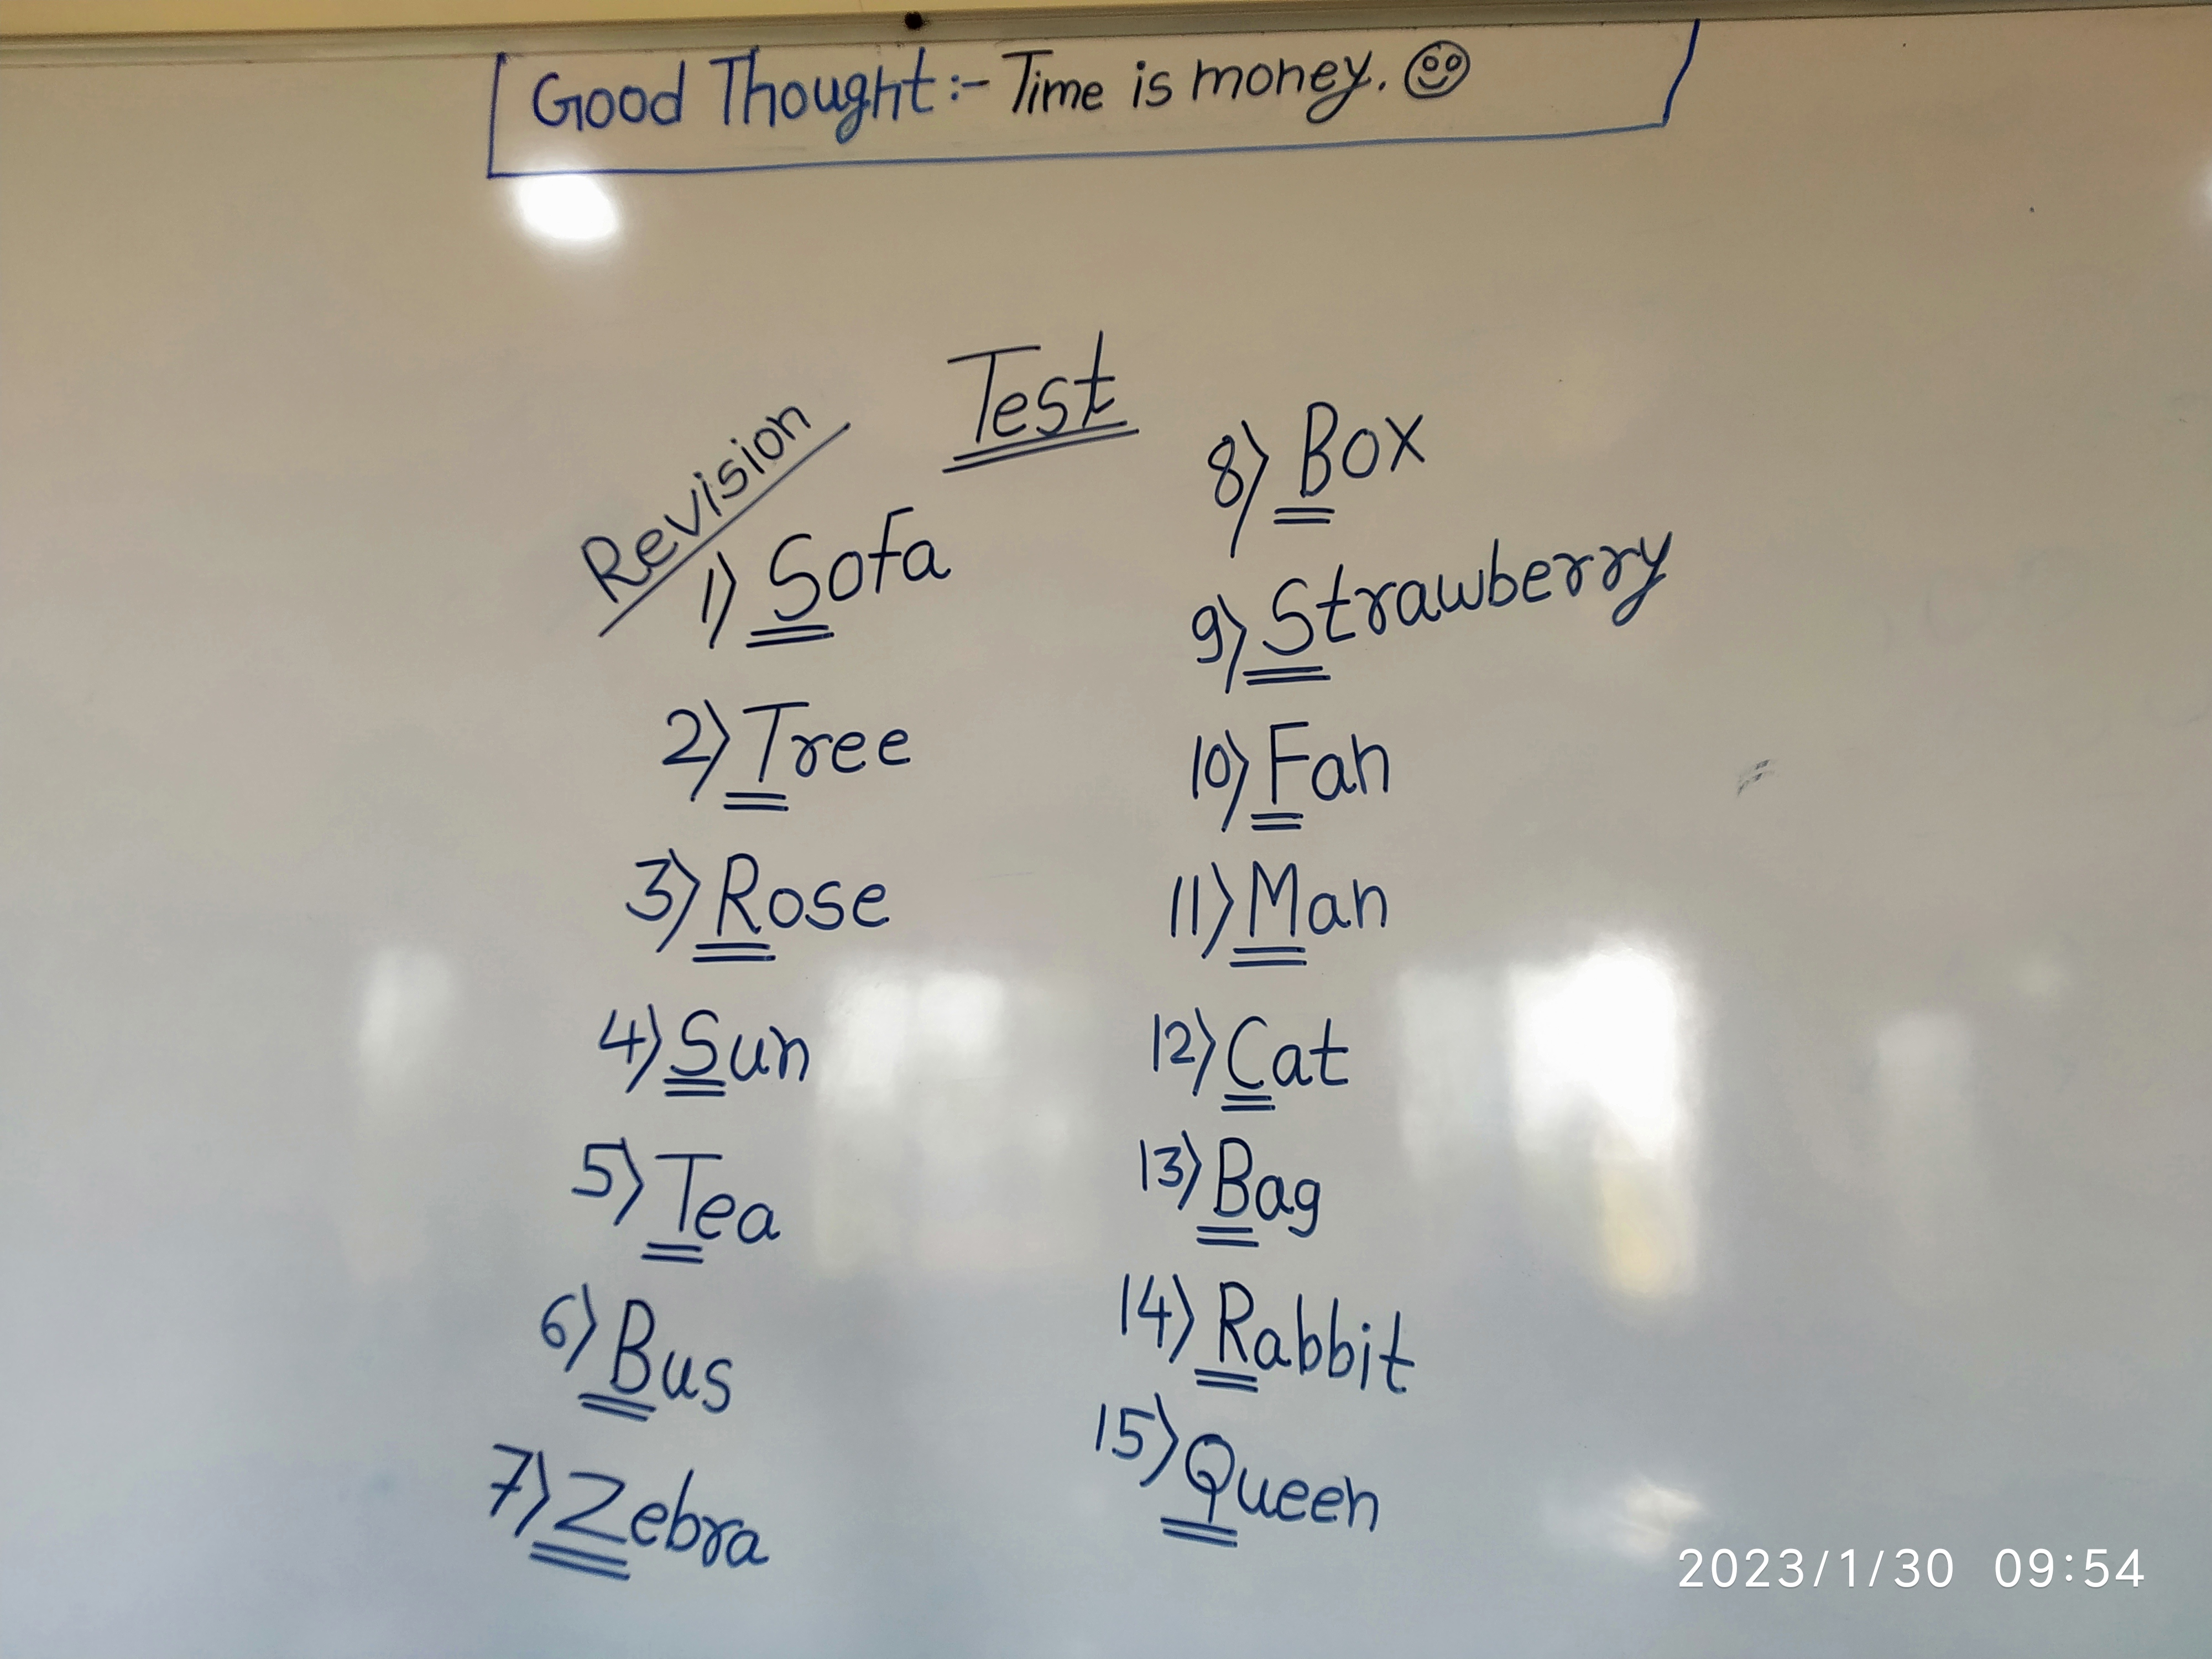 Good Thought :- Time is money. ☺
Test
Revision
1) Sofa
2) Tree
3) Rose
4) Sun
5) Tea
6) Bus
7) Zebra
8) Box
9) Strawberry
10) Fan
11) Man
12) Cat
13) Bag
14) Rabbit
15) Queen
2023/1/30 09:54